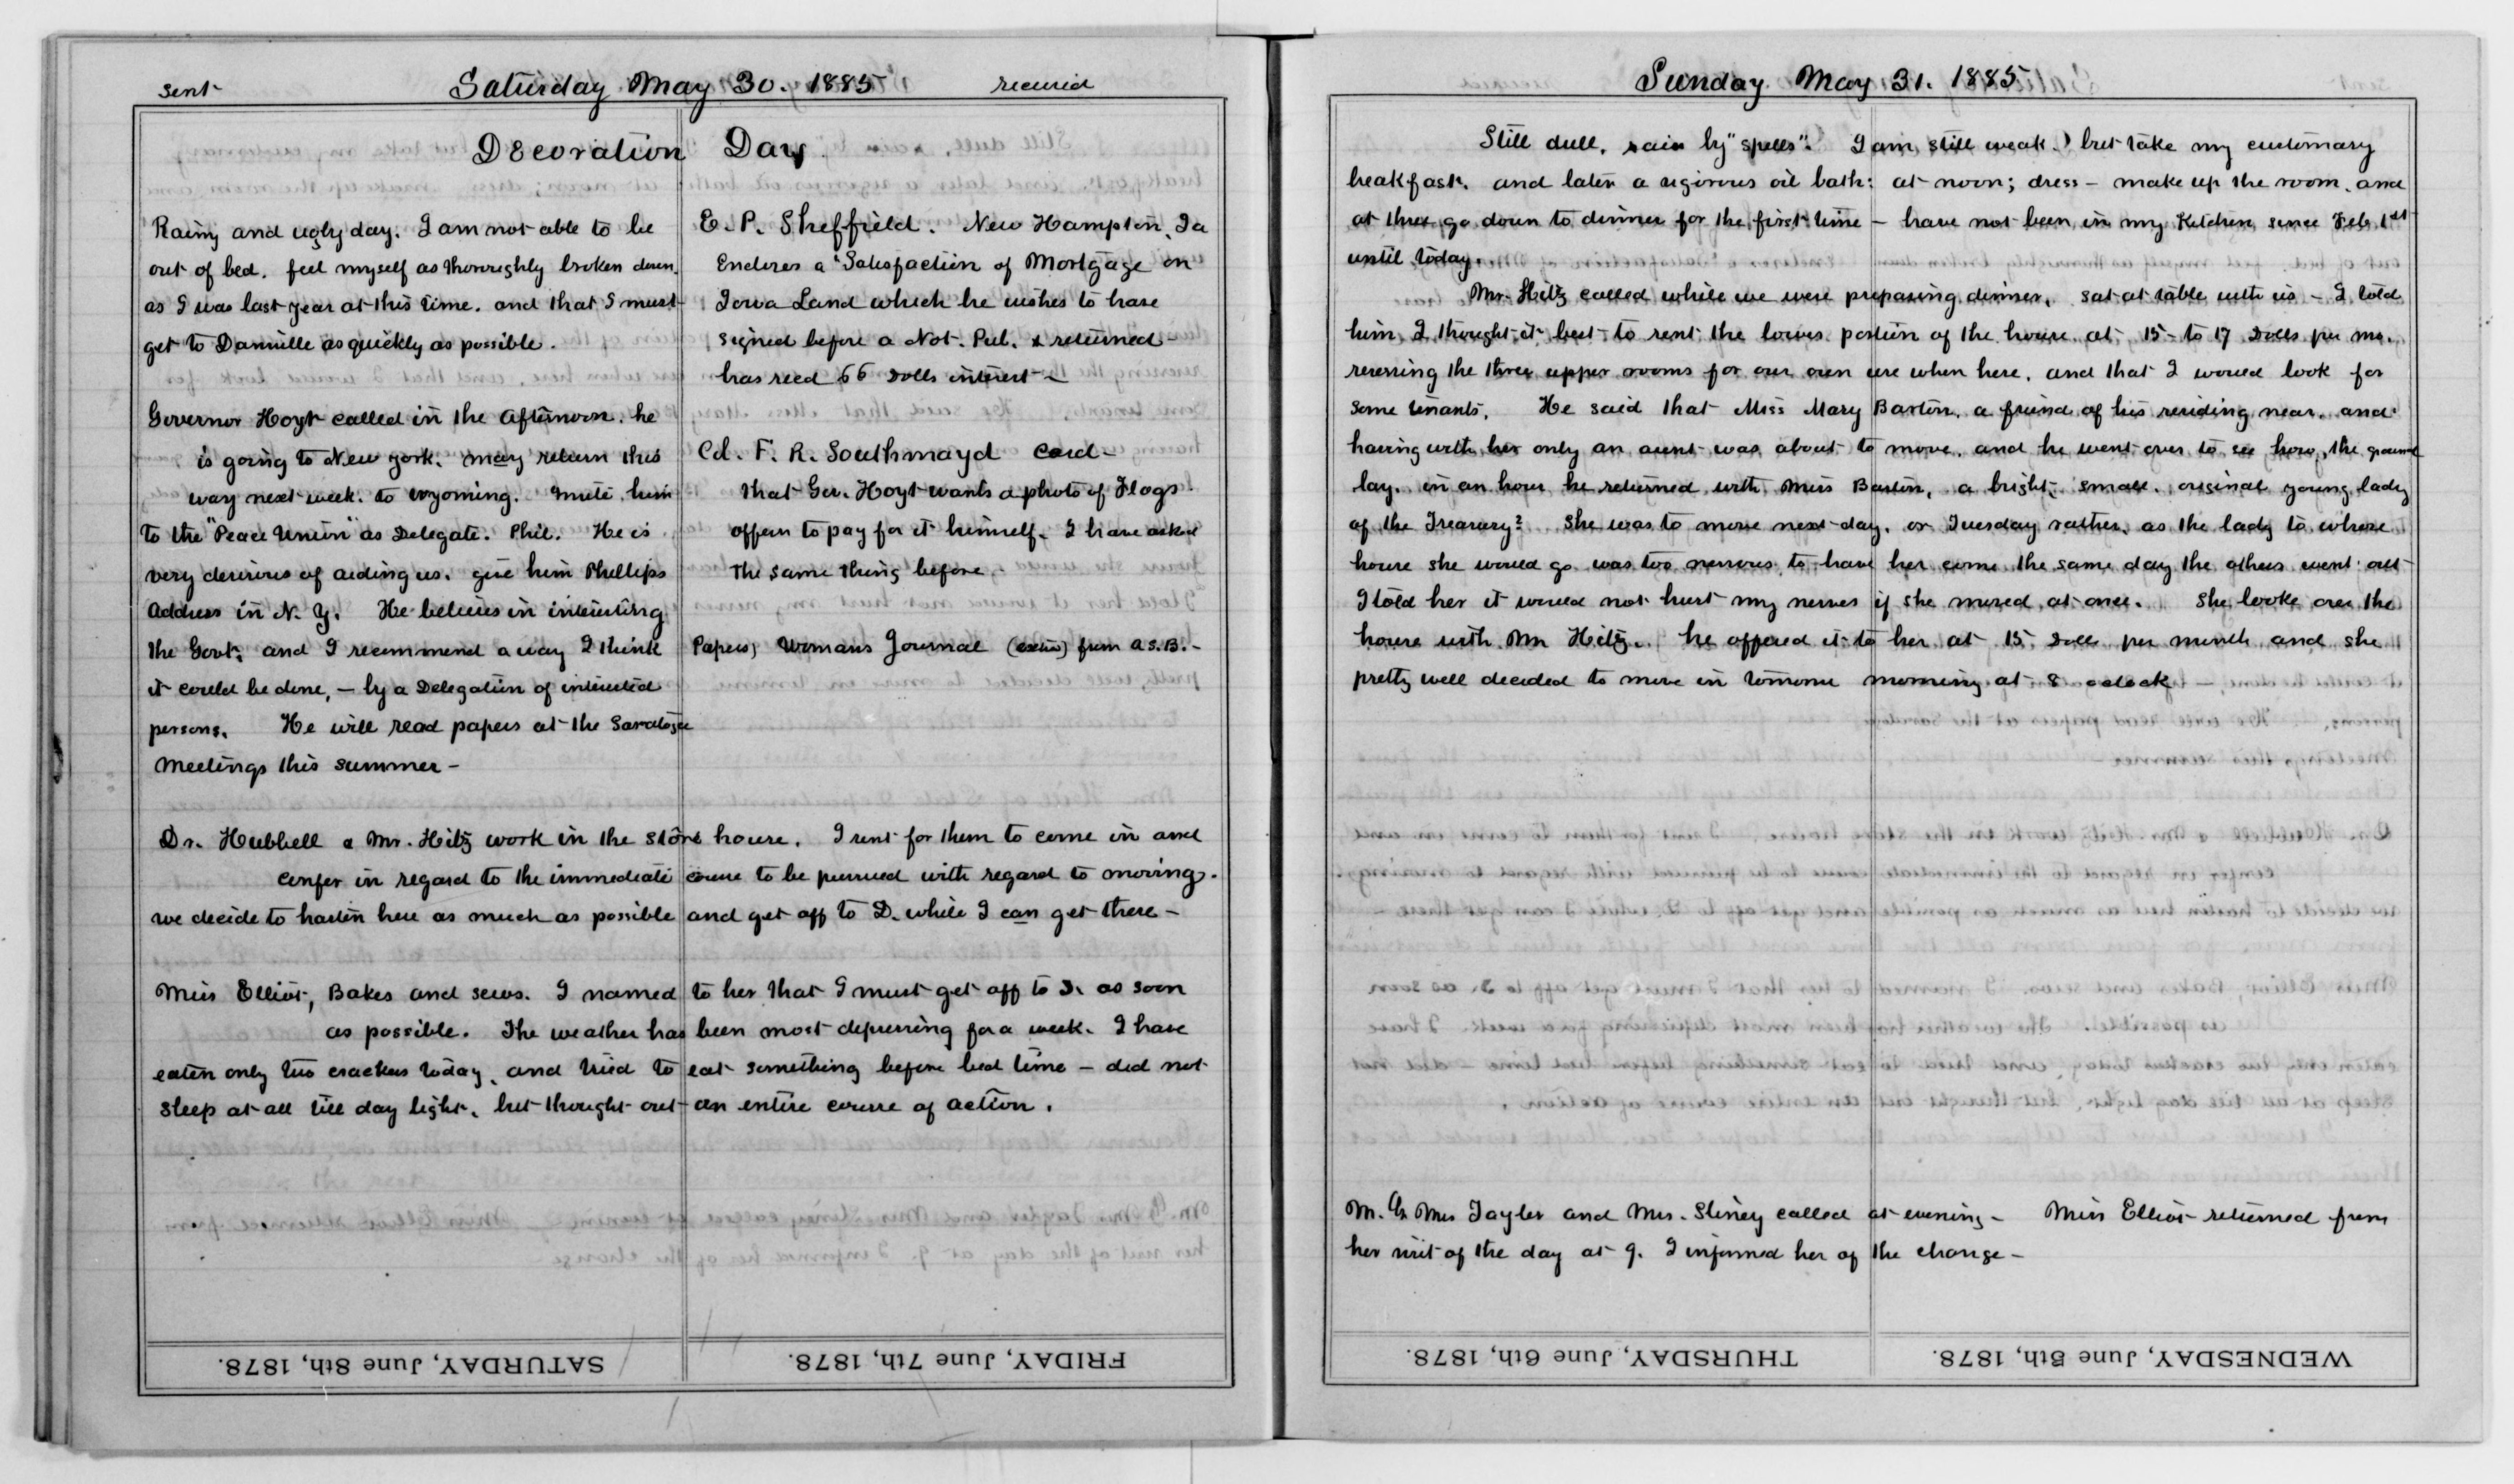 sent Saturday May 30. 1885 received
Decoration Day
Rainy and ugly day. I am not able to be
out of bed. feel myself as thoroughly broken down.
as I was last year at this time. and that I must
get to Dansville as quickly as possible.
Governor Hoyt called in the afternoon. he
is going to New york. may return this
way next week. to wyoming. Invite him
to the "Peace Union" as Delegate. Phil. He is
very desirous of aiding us. give him Phillips
address in N. Y. He believes in interesting
the Govt. and I recommend a way I think
it could be done, - by a Delegation of interested
persons. He will read papers at the Saratoga
meetings this summer -
E. P. Sheffield. New Hampton, Ia
Encloses a "Satisfaction of Mortgage on
Iowa Land which he wishes to have
signed before a Not. Pub. & returned -
has recd 66 Dolls interest -
Col. F. R. Southmayd Card -
that Gov. Hoyt wants a photo of Flags
offers to pay for it himself. I have asked
the same thing before.
Papers) Womans Journal (extra) from A.S.B. -
Dr. Hubbell & Mr. Hitz work in the store house. I sent for them to come in and
confer in regard to the immediate course to be pursued with regard to moving.
we decide to hasten here as much as possible and get off to D. while I can get there -
Miss Elliot, Bakes and sews. I named to her that I must get off to D. as soon
as possible. The weather has been most depressing for a week. I have
eaten only two crackers today, and tried to eat something before bed time - did not
sleep at all till day light, but thought out an entire course of action.
SATURDAY, June 8th, 1878.
FRIDAY, June 7th, 1878.
Sunday May 31. 1885
Still dull, rain by "spells". I am still weak. but take my customary
breakfast. and later a vigorous oil bath: at noon; dress - make up the room, and
at three go down to dinner for the first time - have not been in my Kitchen since Feb 1st
until today.
Mr. Hitz called while we were preparing dinner, sat at table with us - I told
him I thought it best to rent the lower portion of the house at 15 - to 17 Dolls per mo.
reserving the three upper rooms for our own use when here, and that I would look for
some tenants. He said that Miss Mary Barton, a friend of his residing near, and
having with her only an aunt was about to move, and he went over to see how the ground
lay. in an hour he returned with Miss Barton, a bright, small, original young lady
of the Treasury? She was to move next day, or Tuesday rather, as the lady to whose
house she would go was too nervous to have her come the same day the others went out
I told her it would not hurt my nerves if she moved at once. She looks over the
house with Mr Hitz. he offered it to her at 15 Dolls per month and she
pretty well decided to move in tomorrow morning at 8 oclock
Mrs Tayler and Mrs. called at evening - Miss Elliot returned from
her visit of the day at 9. I informed her of the change -
THURSDAY, June 6th, 1878.
WEDNESDAY, June 5th, 1878.